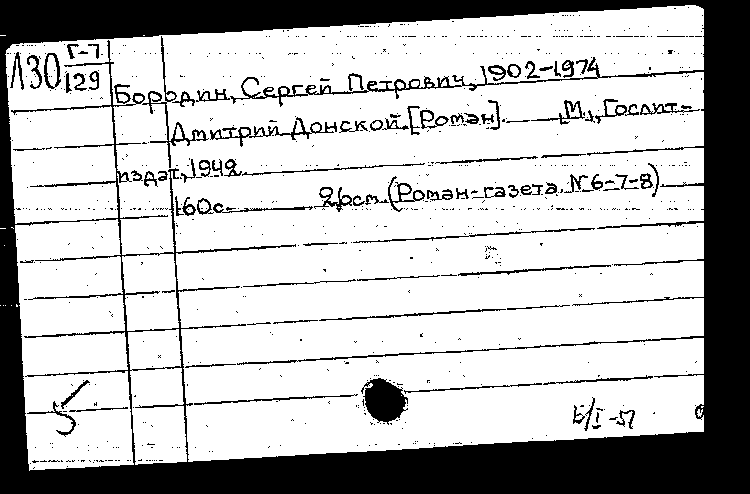 Л30 Г-7/129
Бородин, Сергей Петрович, 1902-1974
Дмитрий Донской. [Роман]. [М.], Гослит-
издат, 1942.
160с. 26см. (Роман-газета. № 6-7-8)
5